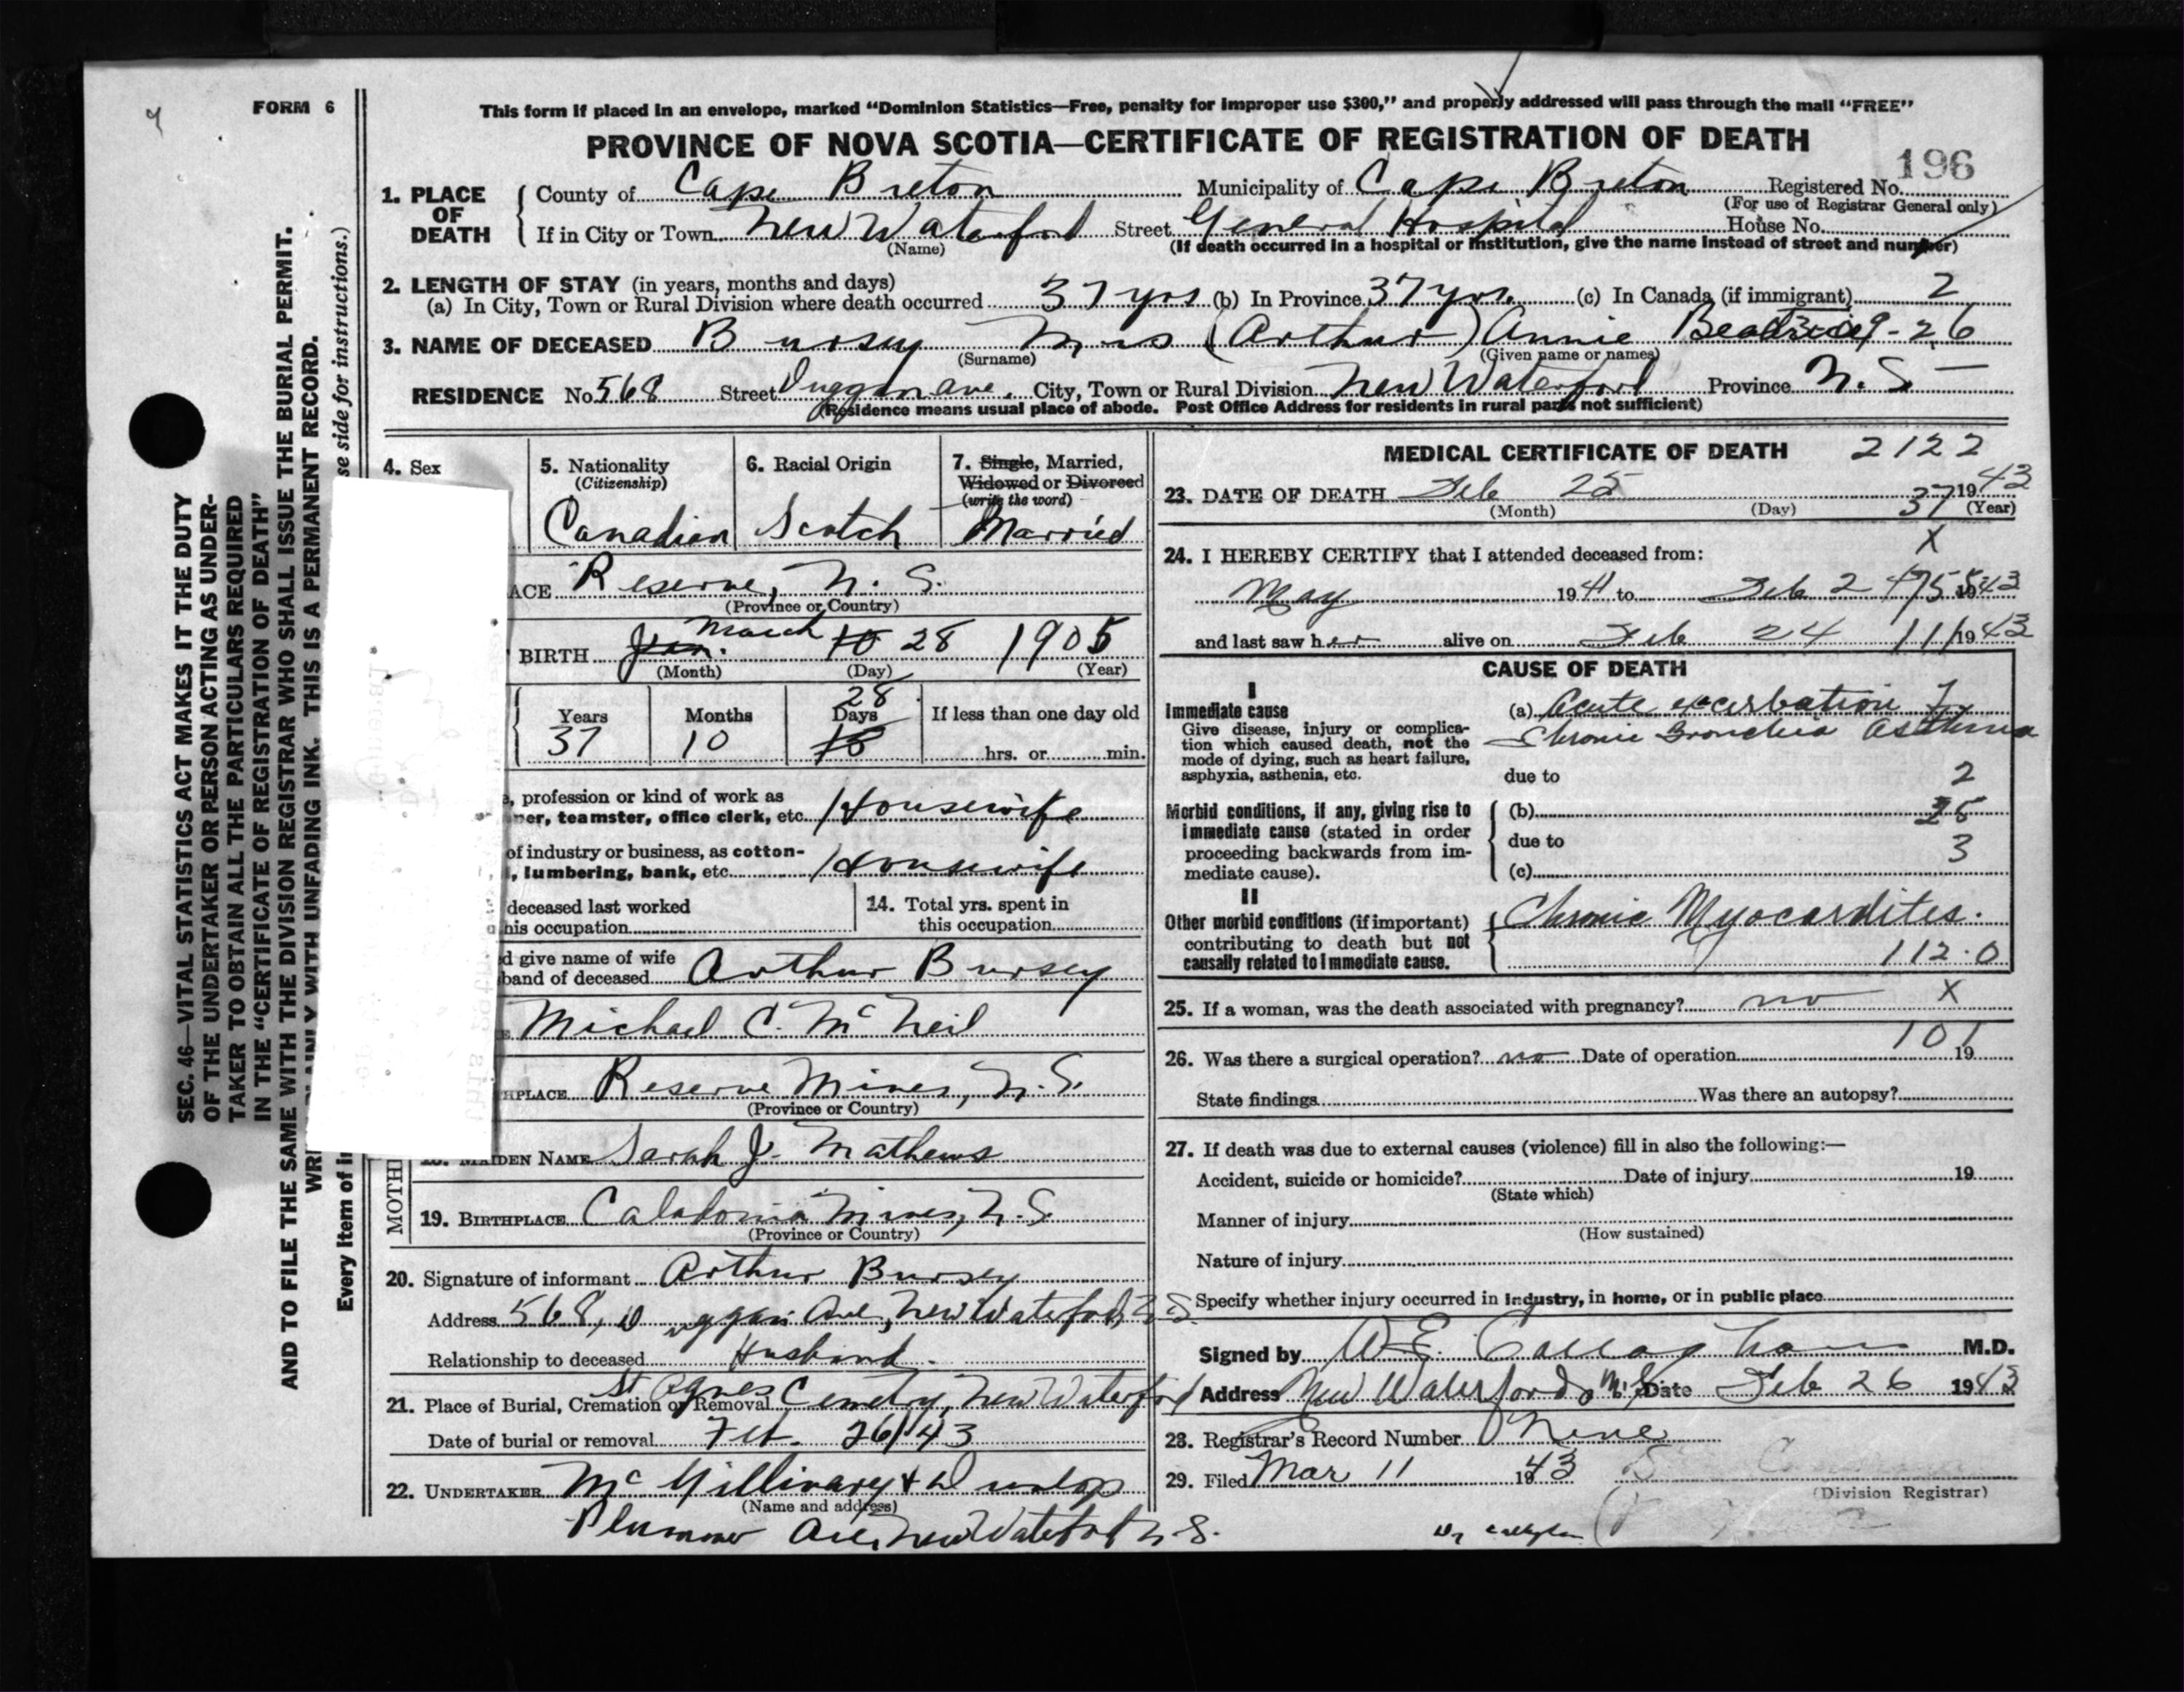 FORM 6
This form if placed in an envelope, marked “Dominion Statistics—Free, penalty for improper use $300,” and properly addressed will pass through the mail “FREE”
PROVINCE OF NOVA SCOTIA—CERTIFICATE OF REGISTRATION OF DEATH
196
1. PLACE OF DEATH
County of Cape Breton Municipality of Cape Breton Registered No.
(For use of Registrar General only)
If in City or Town New Waterford Street General Hospital House No.
(Name) (If death occurred in a hospital or institution, give the name instead of street and number)
2. LENGTH OF STAY (in years, months and days)
(a) In City, Town or Rural Division where death occurred 37 yrs (b) In Province 37 yrs. (c) In Canada (if immigrant) 2
3. NAME OF DECEASED Bursey Mrs (Arthur) Annie
(Surname) (Given name or names)
RESIDENCE No. 568 Street Duggan Ave. City, Town or Rural Division New Waterford Province N.S.
(Residence means usual place of abode. Post Office Address for residents in rural parts not sufficient)
SEC. 46—VITAL STATISTICS ACT MAKES IT THE DUTY
OF THE UNDERTAKER OR PERSON ACTING AS UNDER-
TAKER TO OBTAIN ALL THE PARTICULARS REQUIRED
IN THE “CERTIFICATE OF REGISTRATION OF DEATH”
AND TO FILE THE SAME WITH THE DIVISION REGISTRAR WHO SHALL ISSUE THE BURIAL PERMIT.
WITH UNFADING INK. THIS IS A PERMANENT RECORD.
Every item of
se side for instructions.)
4. Sex
5. Nationality
(Citizenship)
Canadian
6. Racial Origin
Scotch
7. Single, Married,
Widowed or Divorced
(write the word)
Married
ACE Reserve, N. S.
(Province or Country)
BIRTH Jan. March 10 28 1905
(Month) (Day) (Year)
Years Months Days If less than one day old
28
37 10 hrs. or min.
, profession or kind of work as
ner, teamster, office clerk, etc. Housewife
of industry or business, as cotton-
, lumbering, bank, etc. Housewife
deceased last worked
his occupation
14. Total yrs. spent in
this occupation
d give name of wife
band of deceased Arthur Bursey
Michael C. McNeil
HPLACE Reserve Mines, N.S.
(Province or Country)
MOTH
MAIDEN NAME Sarah J. Mathews
19. BIRTHPLACE Caladonia Mines, N.S.
(Province or Country)
20. Signature of informant Arthur Bursey
Address 568, Duggan Ave, New Waterford, N.S.
Relationship to deceased Husband.
21. Place of Burial, Cremation or Removal St Agnes Cemetry, New Waterford
Date of burial or removal Feb. 26/43
22. UNDERTAKER McGillivary & Dunlop
(Name and address)
Plummer Ave, New Waterford N.S.
MEDICAL CERTIFICATE OF DEATH 2122
23. DATE OF DEATH Feb 25 1943
(Month) (Day) (Year)
37
X
24. I HEREBY CERTIFY that I attended deceased from:
May 1941 to Feb 2
and last saw her alive on Feb 24 1943
CAUSE OF DEATH
I
Immediate cause
Give disease, injury or complica-
tion which caused death, not the
mode of dying, such as heart failure,
asphyxia, asthenia, etc.
(a) Acute exacerbation of
Chronic Bronchial Asthma
due to 2
Morbid conditions, if any, giving rise to
immediate cause (stated in order
proceeding backwards from im-
mediate cause).
(b) 25
due to 3
(c)
II
Other morbid conditions (if important)
contributing to death but not
causally related to immediate cause.
Chronic Myocardites.
112.0
25. If a woman, was the death associated with pregnancy? no X
101
26. Was there a surgical operation? no Date of operation 19
State findings Was there an autopsy?
27. If death was due to external causes (violence) fill in also the following:—
Accident, suicide or homicide? Date of injury 19
(State which)
Manner of injury
(How sustained)
Nature of injury
Specify whether injury occurred in industry, in home, or in public place
Signed by W.E. Callaghan M.D.
Address New Waterford, N.S. Date Feb 26 1943
28. Registrar's Record Number Nine
29. Filed Mar 11 1943
(Division Registrar)